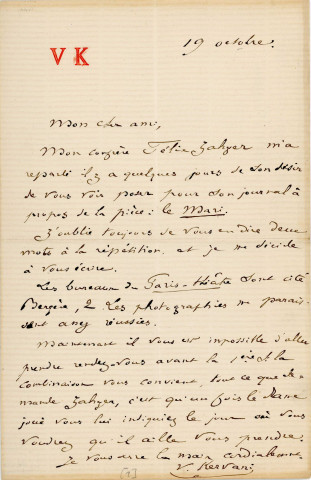 VK
19 octobre.
Mon cher ami,
Mon confrère Félix Jahyer m'a
reparlé il y a quelques jours de son désir
de vous voir poser pour son journal à
propos de la pièce : le Mari.
J'oublie toujours de vous en dire deux
mots à la répétition, et je me décide
à vous écrire.
Les bureaux du Paris-théâtre sont cité
Bergère, 2. Les photographies me parais-
sent assez réussies.
Maintenant il vous est impossible d'aller
prendre rendez-vous avant la 1ère si la
combinaison vous convient, tout ce que de-
mande Jahyer, c'est qu'une fois le drame
joué vous lui indiquiez le jour où vous
voudrez qu'il aille vous prendre.
Je vous serre la main cordialement.
V. Kervani